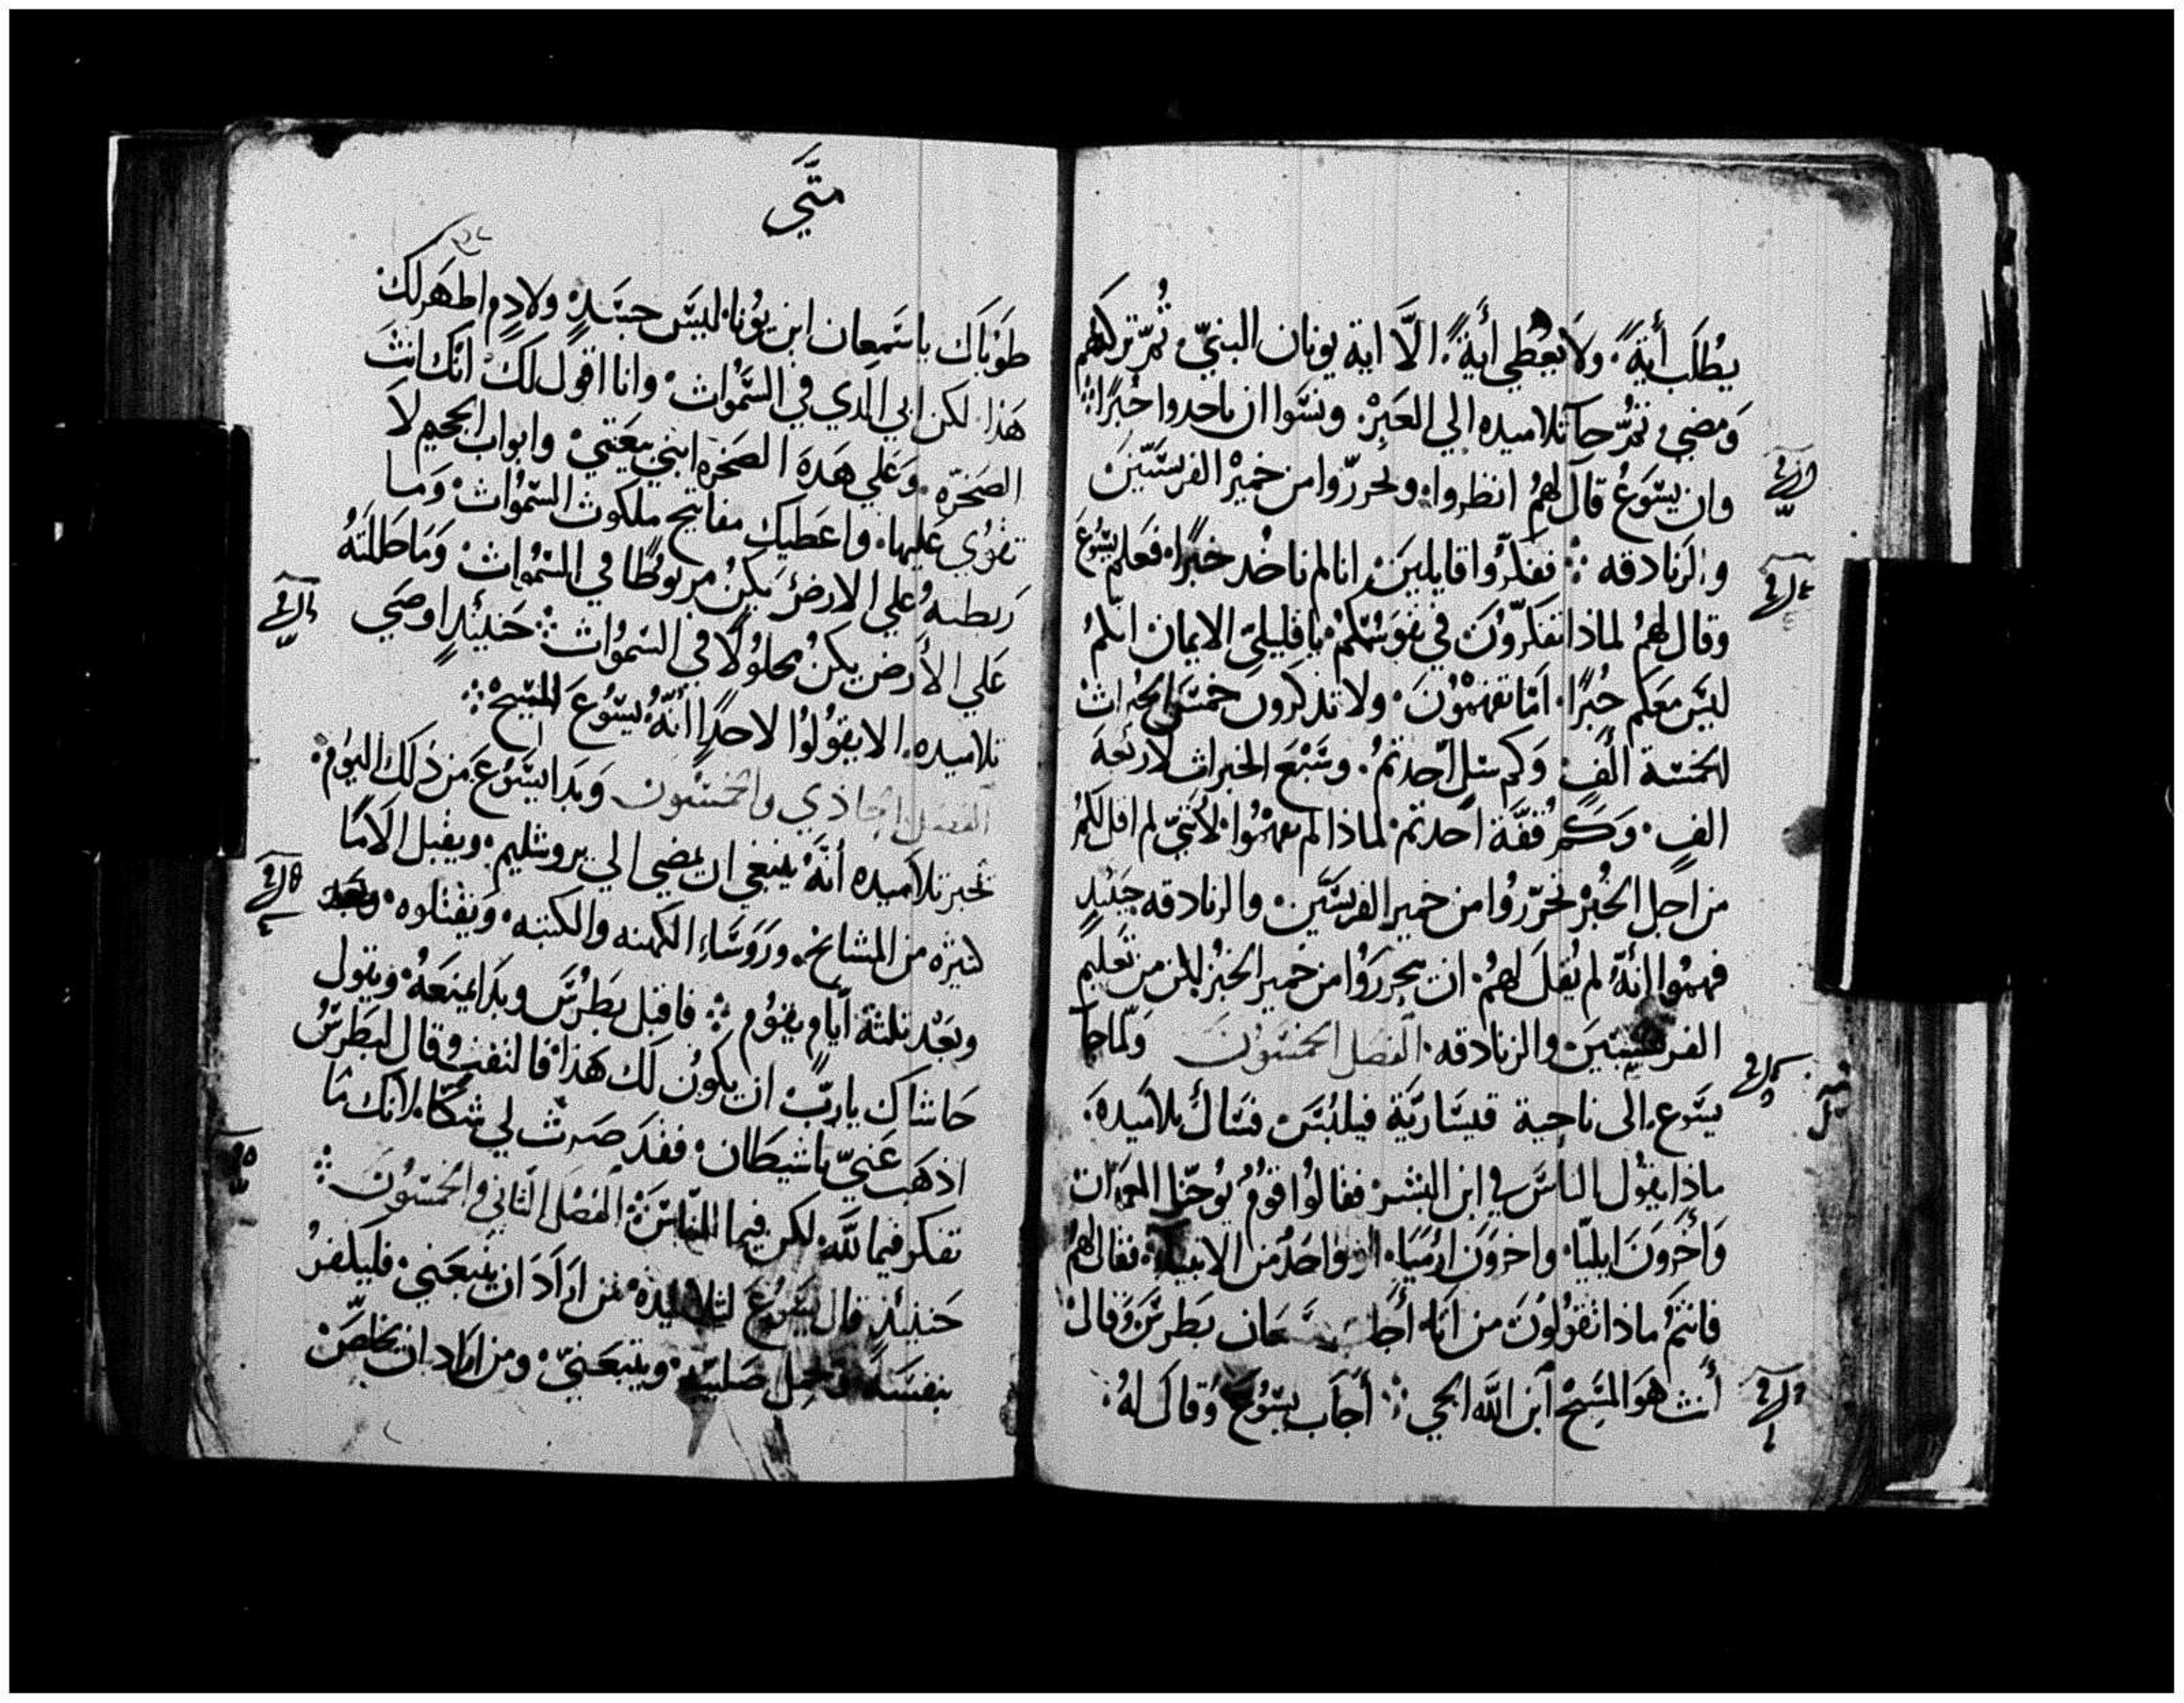 يُطلَب أيةً. ولا يُعطي أيةً. الَّا اية يونان النبيّ. ثُمّ تركهم
وَمضي. ثمّ جآ تلاميده الي العَبِرْ. ونسَوا ان ياحدوا خُبزًا
وان يسَوعُ قال لهمُ انظروا. وتحرزّوا من خميرْ الفريسّيينَ
والزنادقه. ففكرّوا قايلينَ. انا لم ناخُد خبزًا. فعَلم يسَوعَ
وقال لهمُ لماذا تفكرّوُنَ في نفوسُكمْ. يا قليلي الايمان انكمُ
ليسَ معَكم خُبزًا. امَا تفهمْوُنَ. ولا تذكرون خمسَة الخبزاتْ
لخمسَة ألَفٍ. وَكم سَلٍ أخدتمُ. وسَبْعَ الخبزات لاربَعَة
الفٍ. وَكَم قُفَّة اخدتمْ. لماذا لم تفهمُوا. لأنني لم اقل لكمُ
من اجل الخُبْز. تحرّزوُا من خمير الفريسَّين. والزنادقه. حينيدٍ
فهموا انهُ لم يُقلَ لهمُ. ان يتحرزوُا من خمير الخبزُ. لكن من تعليم
الفريسَيينَ والزنادقه. الفصل الخمسَوُنَ ولمّا جآ
يسَوع. الي ناحية قيسَاريّة فيلبُسَ. فسَأل تلاميدهَ.
ماذا يقوُل الناسَ في ابن البشرْ. فقالوُا قومُ يوُحنّا المعمدانْ
وَأخروَنَ ايليّا. واخروَنَ ارْميَا. او واحدُ من الانبياء. فقال لهمُ
فانتمُ ماذا تقوُلوُنَ من انَا. أجابَ سَمعَان بَطرسَ وَقال
أنتَ هَو المسَيحْ ابن اللَّه الحي. أجَاب يسَوُعَ وَقال لهُ.
متَّي
طوَباَك يا سَمعان ابن يوُنا. ليسَ جسَدٍ ولا دمٍ اظهَر لكَ
هَذا. لكن ابي الدي في السَّموُاتْ. وانا اقول لَكْ. انَّك انتَ
الصَخرّه. وَعَلي هَدهَ الصَخرَه ابني بيَعَتيْ. وابواب الجحيم لاَ
تقوُي عَليها. واعَطيَك مفاتيح ملكوت السَموُاتْ. وَما
رَبطتهُ علي الارضْ. يَكنُ مربوُطًا في السَموُاتْ. وَمَا حَللتَهُ
عَلي الأرض يكنُ محلوُلًا في السَموُاتْ. حَينيدٍ اوصَي
تلاميده. الا يقوُلوُا لاحدٍ. أنهُ يسَوُعَ المسَيحْ.
الفصَل الحاذي والخمسَوُن وَبدا يسَوُعَ من ذلك اليَوُم.
تخبر تلاميده أنّهْ ينبغي ان يمضي الي يروشليم. ويقبل الامًا
كثيره من المشايخْ. ورَوسَاءِ الكهنه والكتبه. وَيقتلوه.
وبعَد ثلثة ايام يقوُم. فاقبل بَطرُسَ وبدَا يمنعَهُ. ويقول
حَاشاك ياربّ. ان يكوُن لَك هَذا. فالتفت وقال لبَطرسُ
اذهَب عَنيّ ياشيَطان. فقدَ صَرتْ لي شكًّا. لانك مَا
تفكر فيما للَّه. لكن فيما للنّاسَ. الفصَل الثاني والخمسَوُنَ
حَينيذٍ قال يسَوُعَ لتلاميده. من ارَادَ ان يتبعَني. فليكفرُ
بنفسَهَ. وَيحمل صَليبَه. ويتبعَنيّ. ومن اراد ان يخلصّ